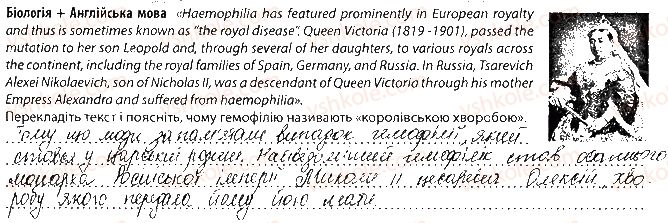 Біологія + Англійська мова «Haemophilia has featured prominently in European royalty
and thus is sometimes known as "the royal disease". Queen Victoria (1819 -1901), passed the
mutation to her son Leopold and, through several of her daughters, to various royals across
the continent, including the royal families of Spain, Germany, and Russia. In Russia, Tsarevich
Alexei Nikolaevich, son of Nicholas II, was a descendant of Queen Victoria through his mother
Empress Alexandra and suffered from haemophilia».
Перекладіть текст і поясніть, чому гемофілію називають «королівською хворобою».
Тому що люди запам'ятали випадок гемофілії, який
стався у царській родині. Найвідоміший гемофілік став останнього
монарха Російської імперії Миколи II цесаревич Олексій хво
робу якого передала йому його мати